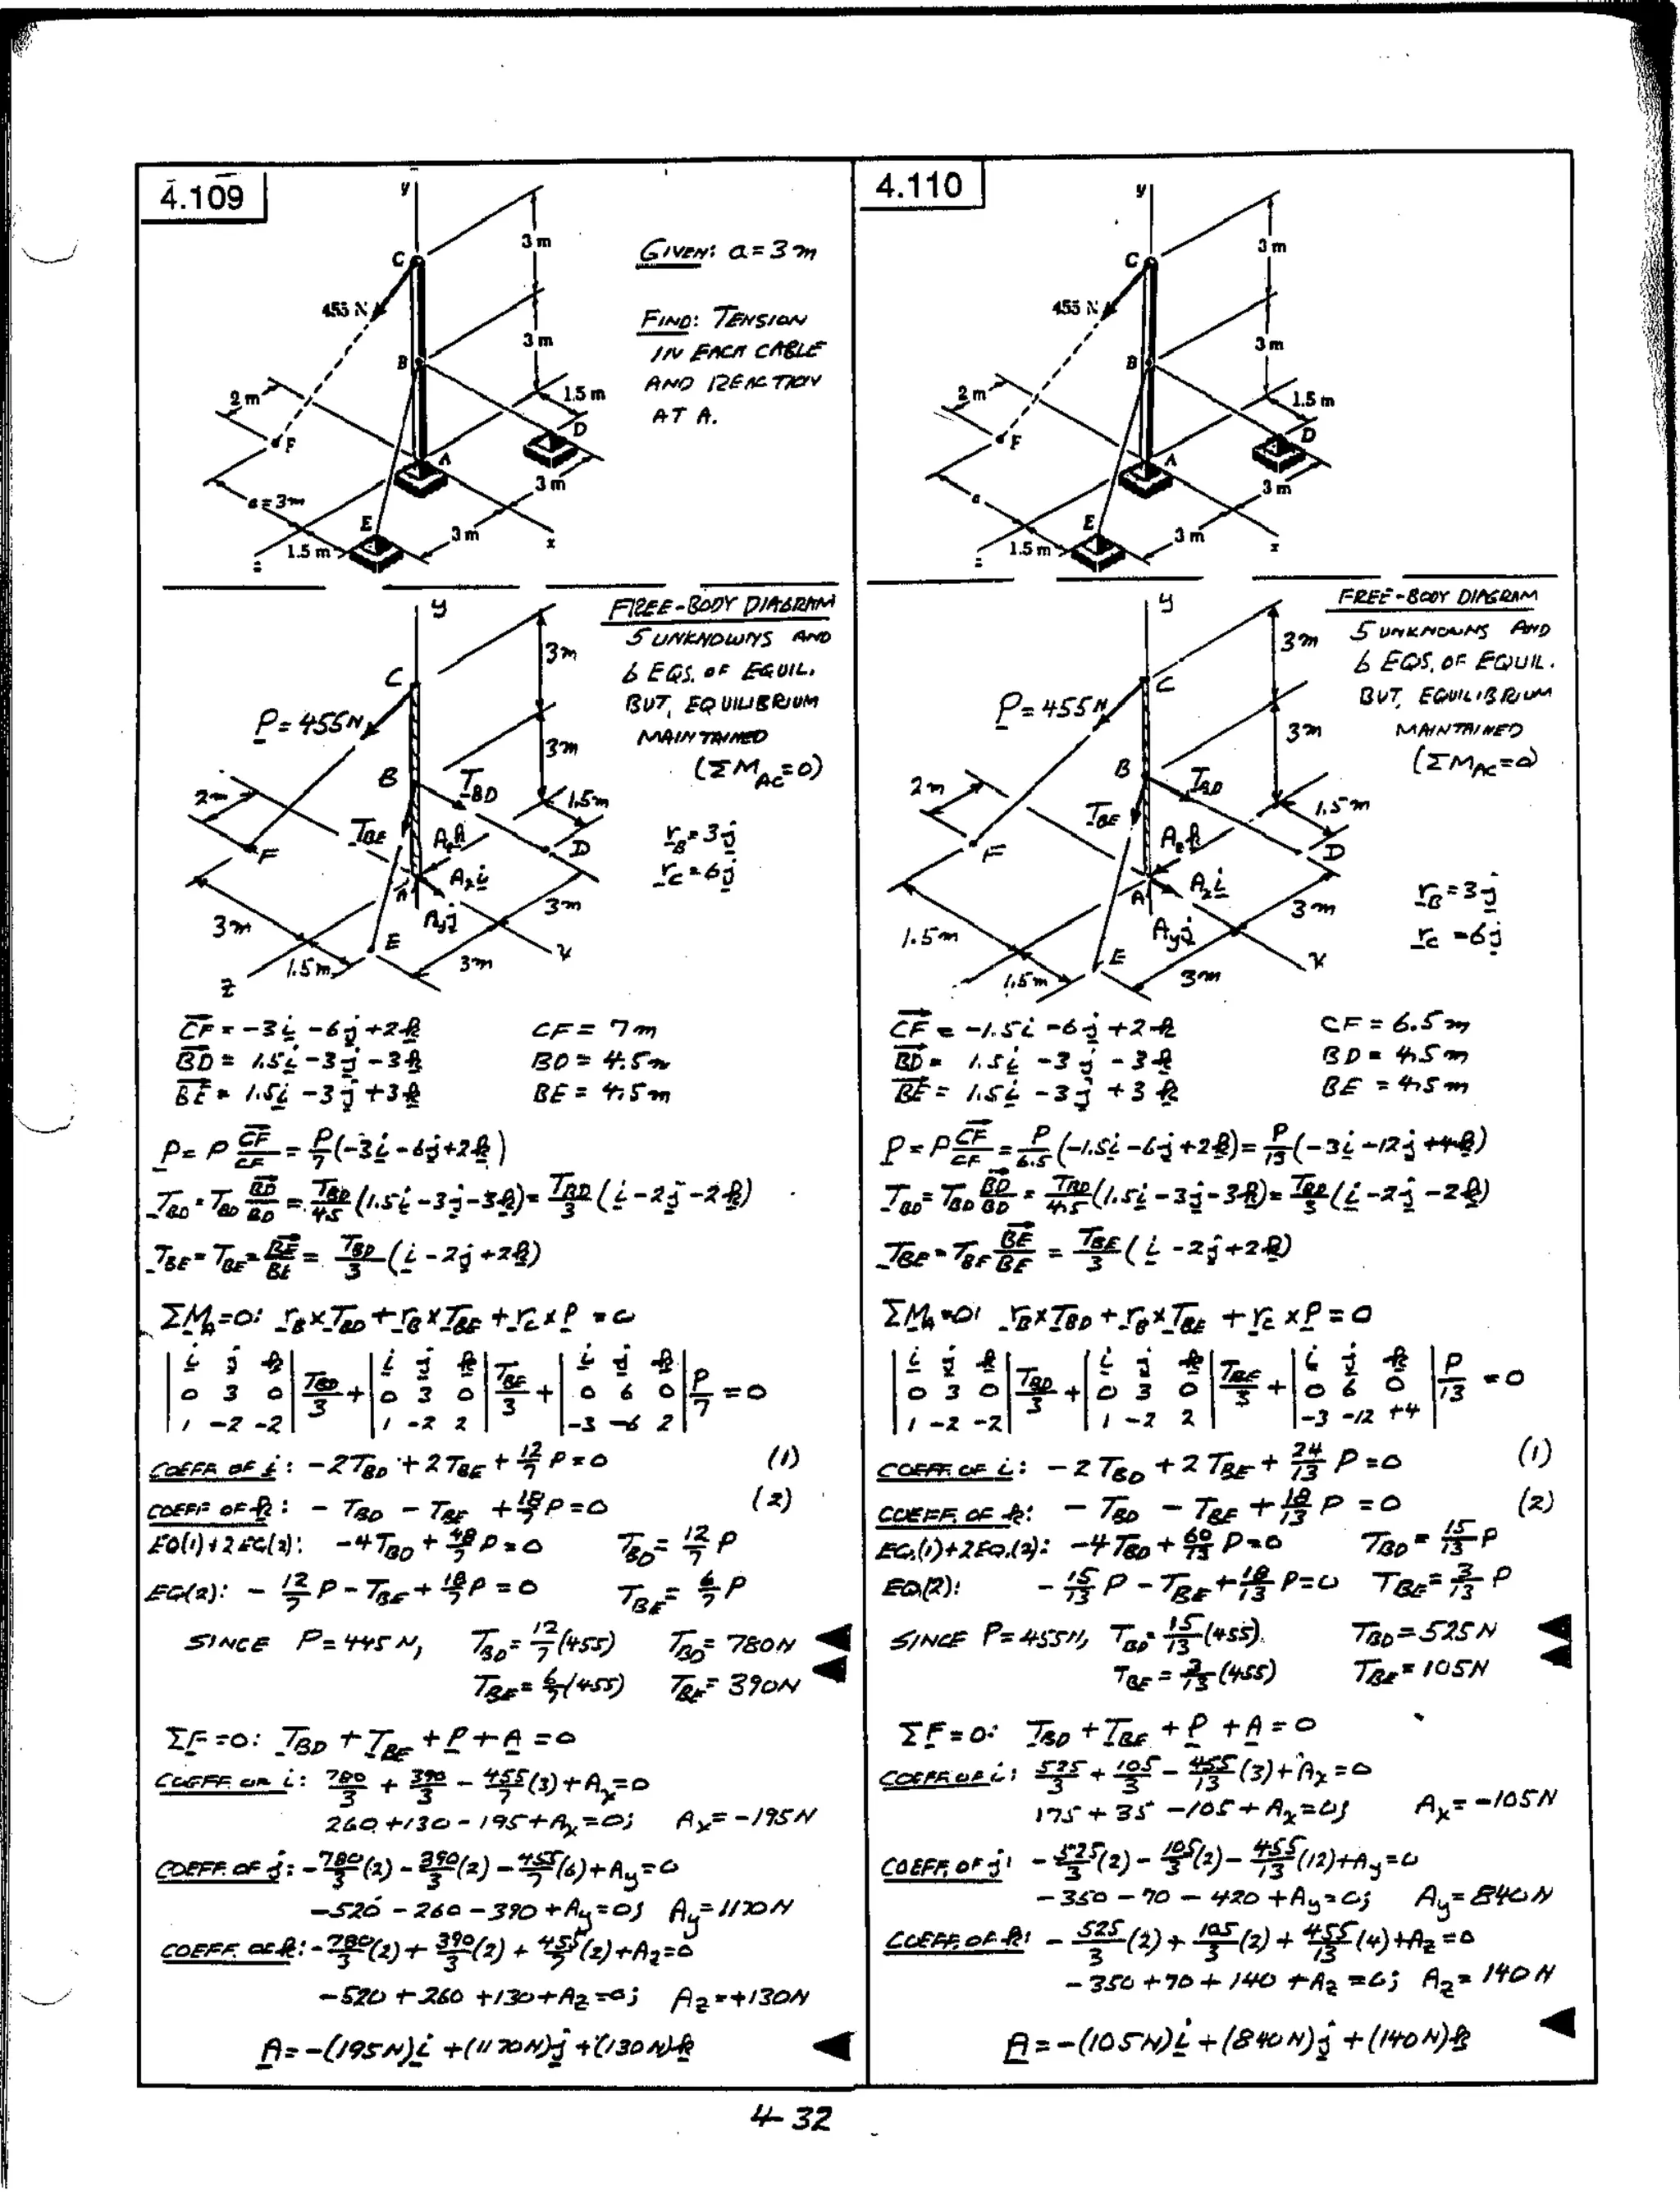 4.109
y
3 m
GIVEN: a = 3 m
C
455 N
FIND: TENSION
IN EACH CABLE
AND REACTION
AT A.
3 m
B
2 m
1.5 m
F
D
A
a = 3m
3 m
E
3 m
1.5 m
x
z
FREE-BODY DIAGRAM
5 UNKNOWNS AND
6 EQS. OF EQUIL.
BUT, EQUILIBRIUM
MAINTAINED
(ΣM_AC=0)
y
3m
C
P = 455N
3m
B
T_BD
2m
1.5m
T_BE
A_z k
r_B = 3j
r_C = 6j
F
D
A_x i
A
A_y j
3m
3m
E
1.5m
3m
x
z
CF = -3i -6j +2k CF = 7m
BD = 1.5i -3j -3k BD = 4.5m
BE = 1.5i -3j +3k BE = 4.5m
P = P CF/CF = P/7 (-3i -6j +2k)
T_BD = T_BD BD/BD = T_BD/4.5 (1.5i -3j -3k) = T_BD/3 (i -2j -2k)
T_BE = T_BE = BE/BE = T_BD/3 (i -2j +2k)
ΣM_A = 0: r_B × T_BD + r_B × T_BE + r_C × P = 0
|i j k| |i j k| |i j k|
|0 3 0| T_BD/3 + |0 3 0| T_BE/3 + |0 6 0| P/7 = 0
|1 -2 -2| |1 -2 2| |-3 -6 2|
COEFF. OF i: -2T_BD + 2T_BE + 12/7 P = 0 (1)
COEFF. OF k: - T_BD - T_BE + 18/7 P = 0 (2)
EQ(1)+2EQ(2): -4T_BD + 48/7 P = 0 T_BD = 12/7 P
EQ(2): - 12/7 P - T_BE + 18/7 P = 0 T_BE = 6/7 P
SINCE P = 445 N, T_BD = 12/7 (455) T_BD = 780N
T_BE = 6/7 (455) T_BE = 390N
ΣF = 0: T_BD + T_BE + P + A = 0
COEFF OF i: 780/3 + 390/3 - 455/7 (3) + A_x = 0
260 + 130 - 195 + A_x = 0; A_x = -195N
COEFF. OF j: -780/3 (2) - 390/3 (2) - 455/7 (6) + A_y = 0
-520 - 260 - 390 + A_y = 0; A_y = 1170N
COEFF. OF k: -780/3 (2) + 390/3 (2) + 455/7 (2) + A_z = 0
-520 + 260 + 130 + A_z = 0; A_z = +130N
A = -(195N)i + (1170N)j + (130N)k
4.110
y
3 m
C
455 N
3 m
B
2 m
1.5 m
F
D
A
a
3 m
E
3 m
1.5 m
x
z
FREE-BODY DIAGRAM
5 UNKNOWNS AND
6 EQS. OF EQUIL.
BUT, EQUILIBRIUM
MAINTAINED
(ΣM_AC=0)
y
3m
C
P = 455N
3m
B
T_BD
2m
1.5m
T_BE
A_z k
F
D
A_x i
A
A_y j
r_B = 3j
r_C = 6j
1.5m
3m
E
1.5m
3m
x
CF = -1.5i -6j +2k CF = 6.5m
BD = 1.5i -3j -3k BD = 4.5m
BE = 1.5i -3j +3k BE = 4.5m
P = P CF/CF = P/6.5 (-1.5i -6j +2k) = P/13 (-3i -12j +4k)
T_BD = T_BD BD/BD = T_BD/4.5 (1.5i -3j -3k) = T_BD/3 (i -2j -2k)
T_BE = T_BE BE/BE = T_BE/3 (i -2j +2k)
ΣM_A = 0: r_B × T_BD + r_B × T_BE + r_C × P = 0
|i j k| |i j k| |i j k|
|0 3 0| T_BD/3 + |0 3 0| T_BE/3 + |0 6 0| P/13 = 0
|1 -2 -2| |1 -2 2| |-3 -12 +4|
COEFF. OF i: -2T_BD + 2T_BE + 24/13 P = 0 (1)
COEFF. OF k: - T_BD - T_BE + 18/13 P = 0 (2)
EQ.(1)+2EQ.(2): -4T_BD + 60/13 P = 0 T_BD = 15/13 P
EQ(2): - 15/13 P - T_BE + 18/13 P = 0 T_BE = 3/13 P
SINCE P = 455N, T_BD = 15/13 (455). T_BD = 525N
T_BE = 3/13 (455) T_BE = 105N
ΣF = 0: T_BD + T_BE + P + A = 0
COEFF OF i: 525/3 + 105/3 - 455/13 (3) + A_x = 0
175 + 35 - 105 + A_x = 0; A_x = -105N
COEFF. OF j: -525/3 (2) - 105/3 (2) - 455/13 (12) + A_y = 0
-350 - 70 - 420 + A_y = 0; A_y = 840N
COEFF. OF k: - 525/3 (2) + 105/3 (2) + 455/13 (4) + A_z = 0
-350 + 70 + 140 + A_z = 0; A_z = 140N
A = -(105N)i + (840N)j + (140N)k
4-32